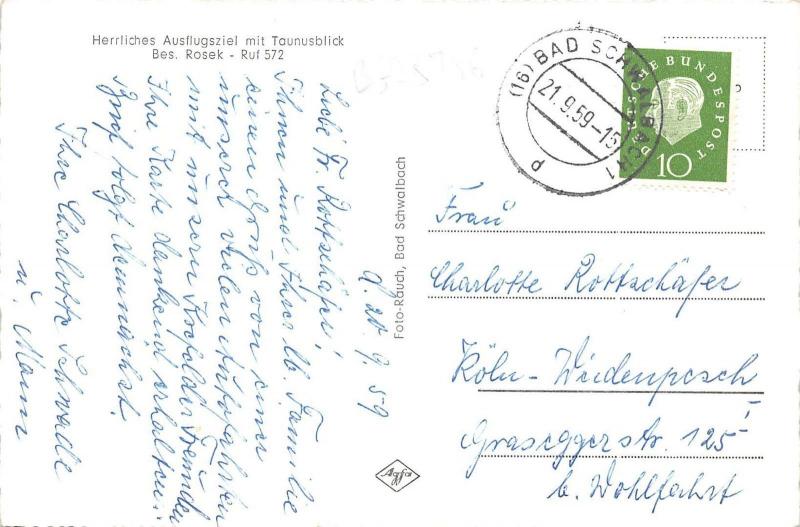 Herrliches Ausflugsziel mit Taunusblick
Bes. Rosek - Ruf 572
d. 20. 9. 59
Liebe Fr. Rottschäfer!
Ihnen und Ihrer lb. Familie
einen Gruß von einer
unserer vielen Autofahrten
mit unseren Krefelder Freunden
Ihre Karte dankend erhalten.
Brief folgt demnächst.
Ihre Charlotte Schwade
u. Mann
Foto-Rauch, Bad Schwalbach
Agfa
(16) BAD SCHWALBACH 1
21.9.59-15
p
DEUTSCHE BUNDESPOST
10
Frau
Charlotte Rottschäfer
Köln-Weidenpesch
Graseggerstr. 125 I
b. Wohlfahrt